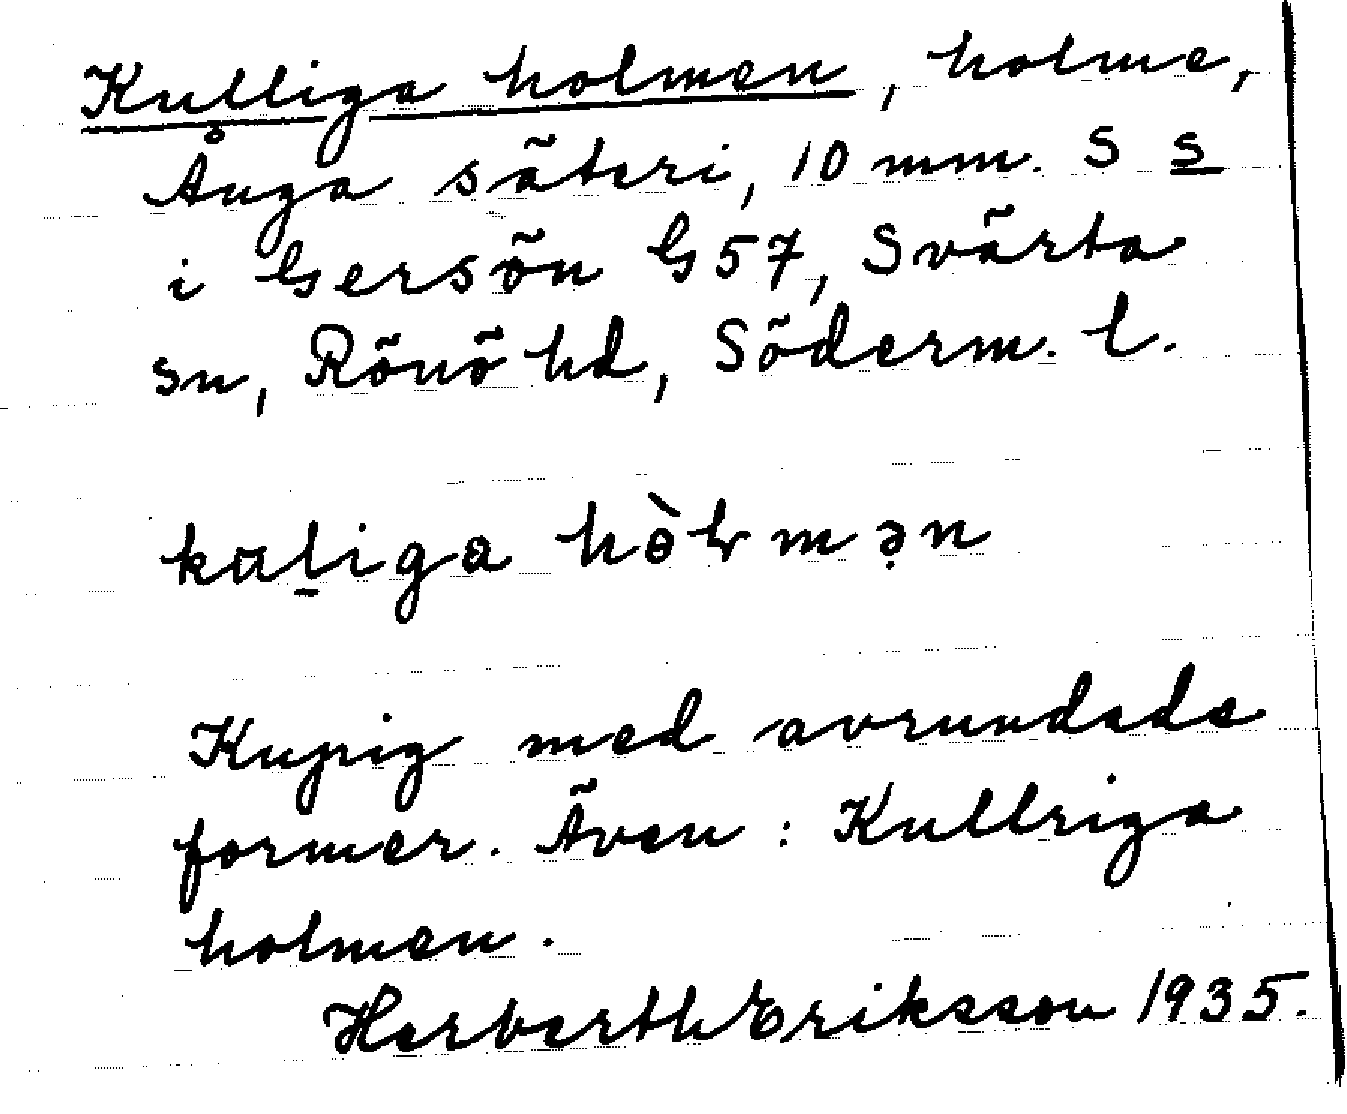 Kulliga holmen, holme,
Ånga säteri, 10 mm. S s
i Gersön G57, Svärta
sn, Rönö hd, Söderm. l.
holmən
Kupig med avrundade
former. Även: Kullriga
holmen.
Herberth Eriksson 1935.